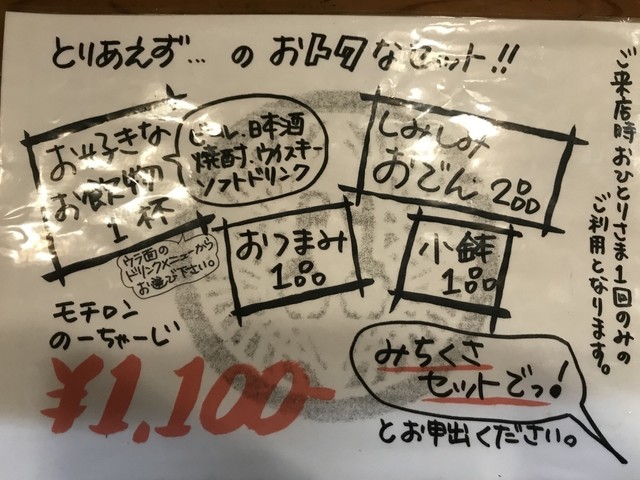 とりあえず…のおトクなセット!!
お好きな
お飲物
1杯
ビール、日本酒
焼酎、ウイスキー
ソフトドリンク
ウラ面の
ドリンクメニューから
お選び下さい。
しみしみ
おでん2品
おつまみ
1品
小鉢
1品
モチロン
のーちゃーじ
¥1,100-
みちくさ
セットでっ!
とお申出ください。
ご来店時おひとりさま1回のみの
ご利用となります。